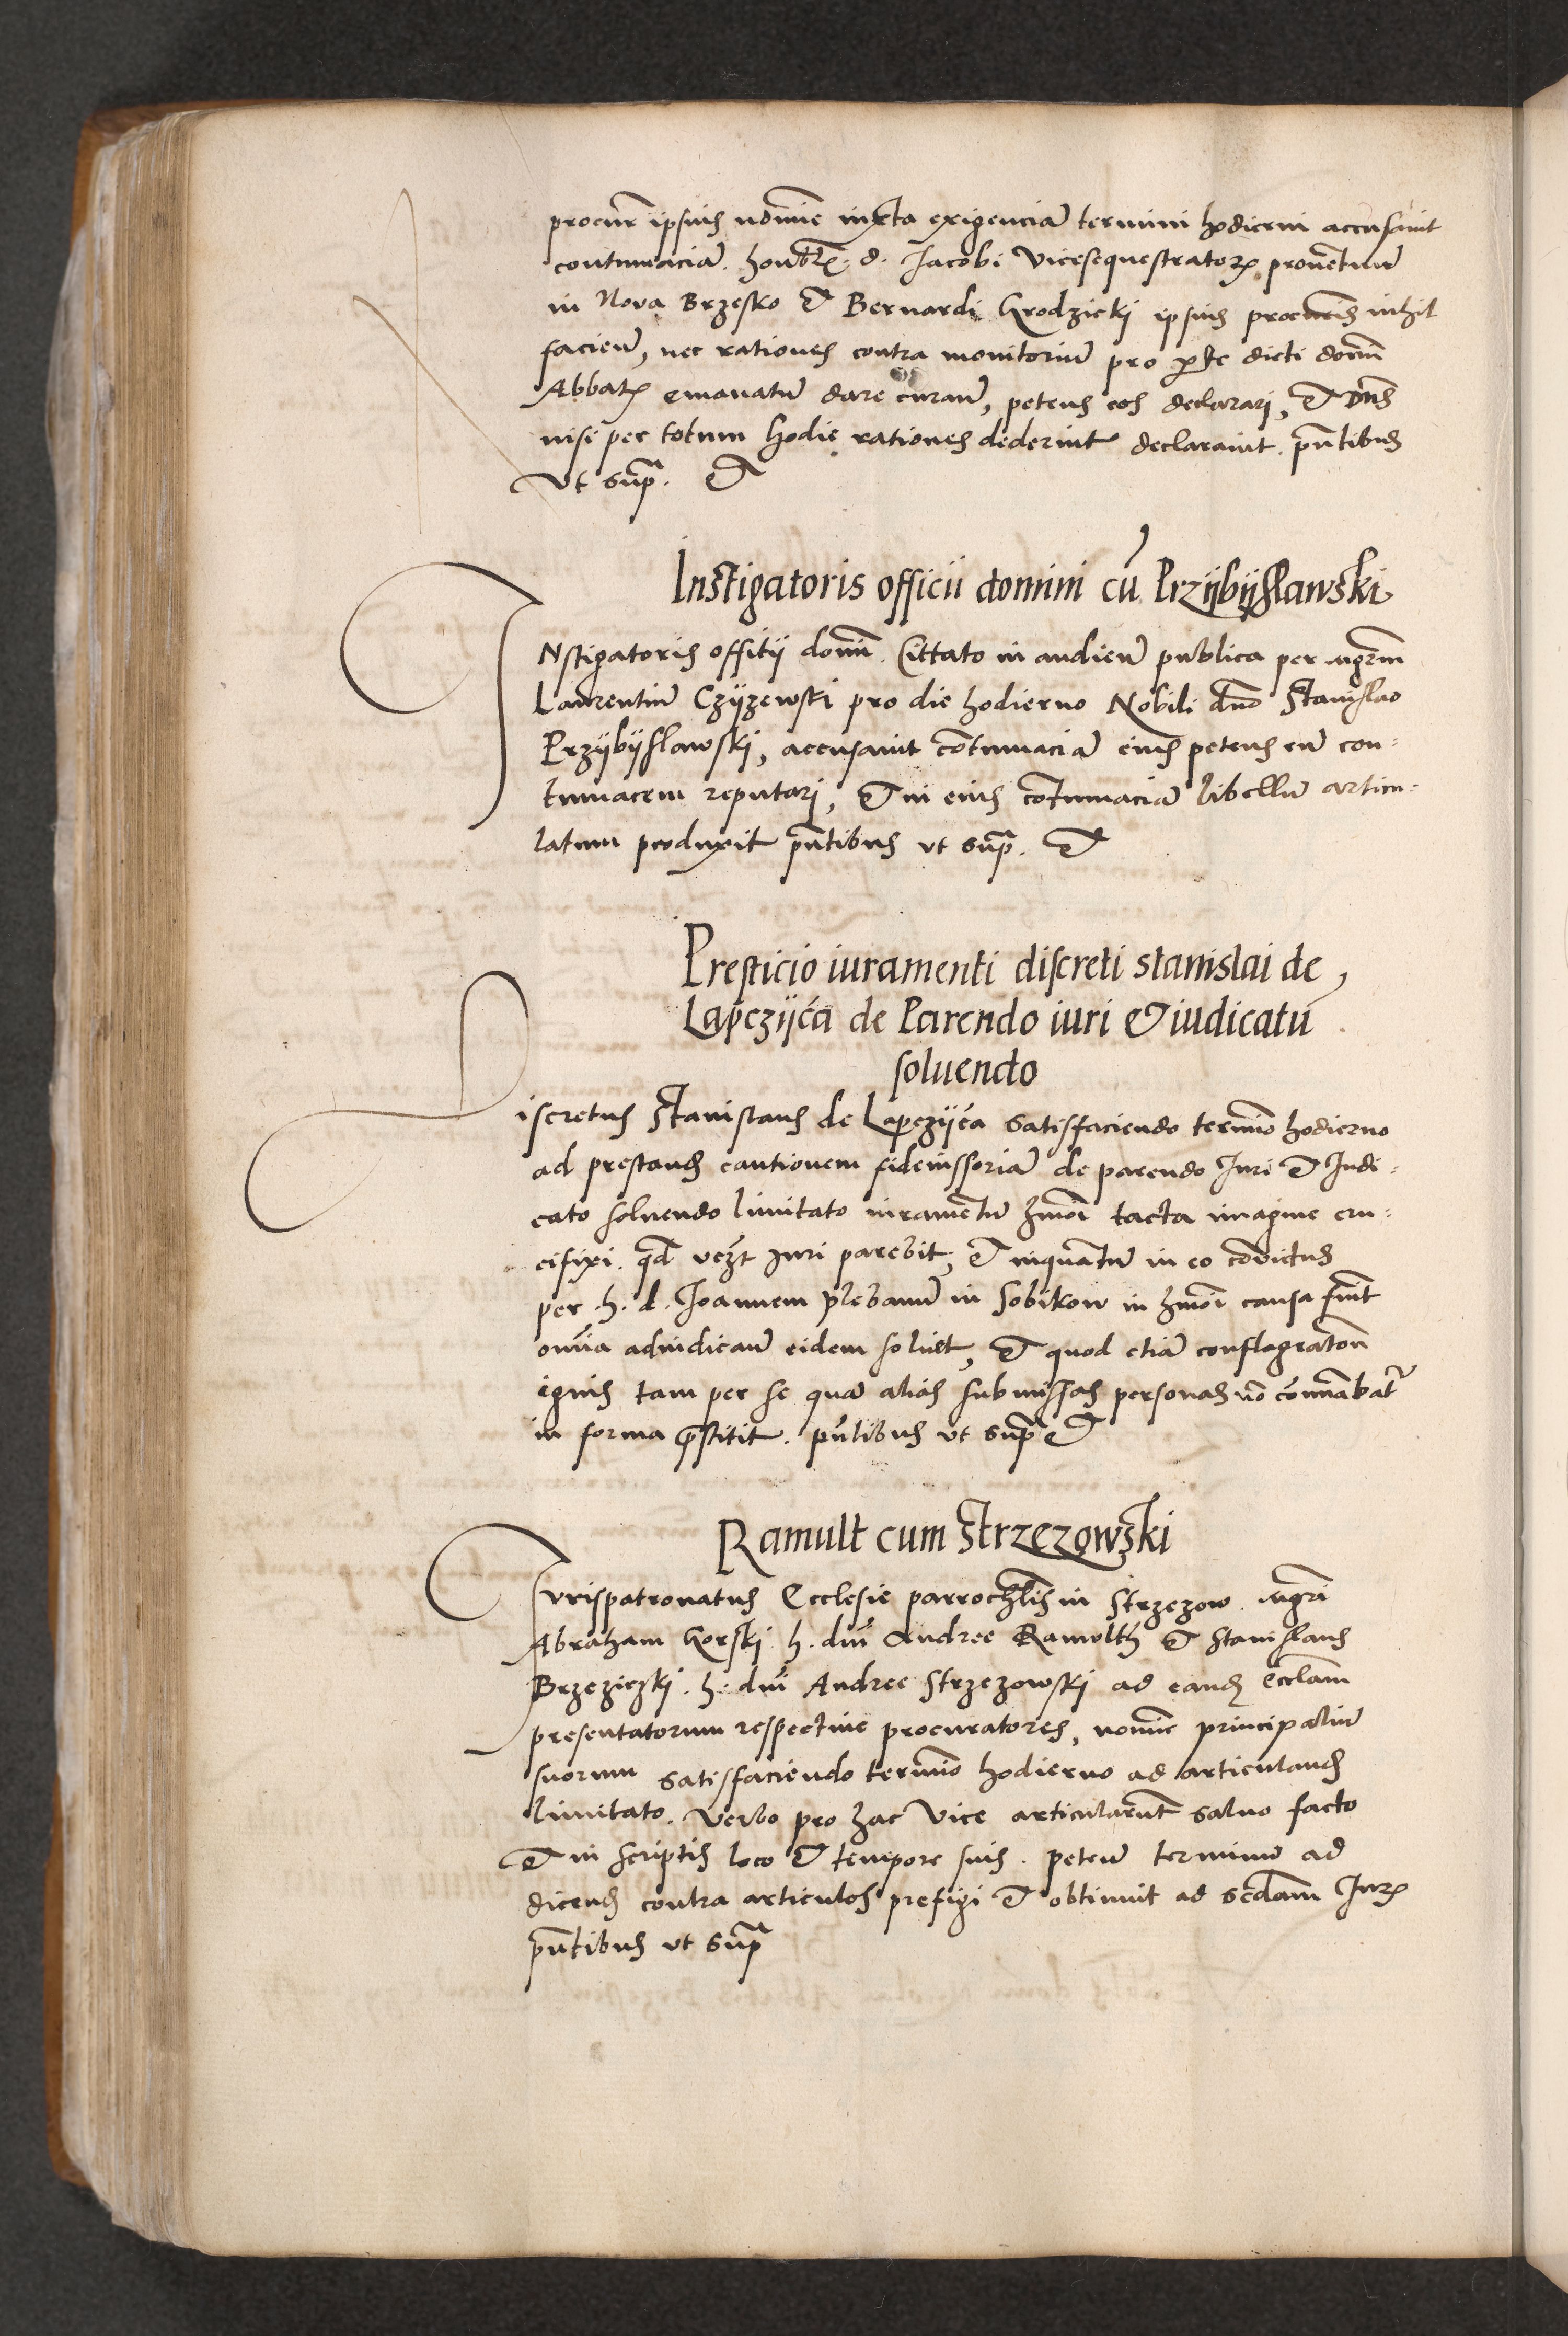 procur ipsius nomine iuxta exigenciam termini hodierni accusavit
contumaciam honblis d. Jacobi Vicesequestratoris proventuum
in Nova Brzesko et Bernardi Grodzicki ipsius procuris nihil
facien, nec rationes contra monitorium pro parte dicti domini
Abbatis emanatum dare curan, petens eos declarari, et Dns
nisi per totum hodie rationes dederint declaravit. pntibus
ut supra. et
Instigatoris officii domini cu Przÿbÿslawski
INstigatoris offitij domini. Cittato in audien publica per mgrm
Laurentium Czÿzewski pro die hodierno Nobili dno Stanislao
Przÿbÿslawski, accusavit contumaciam eius petens eum con-
tumacem reputari, et in eius contumaciam libellum articu-
latum produxit pntibus ut supra. et
Presticio iuramenti discreti stanislai de
Lapczÿca de Parendo iuri et iudicatu
soluendo
Discretus Stanislaus de Lapczÿca satisfaciendo termino hodierno
ad prestand cautionem fideiussoriam de parendo Iuri et Iudi-
cato soluendo limitato iuramentum hmoi tacta imagine cru-
cifixi. qd vczt Iuri parebit, et inquantum in eo convictus
per h. d. Joannem plebanum in Sobikow in hmoi causa fuit
omnia adiudicam eidem soluet, et quod etiam conflagratom
ignis tam per se quam alias submissas personas no comnabatr
in forma prestitit. pntibus ut supra et
Ramult cum Strzezowski
Iurispatronatus Ecclesie parrochlis in Strzezow. mgri
Abraham Gorski h. dni Andree Ramolth et Stanislaus
Brzeziczki. h. dni Andree Strzezowski ad eand Ecclam
presentatorum respective procuratores, nomine principalium
suorum satisfaciendo termino hodierno ad articuland
limitato. Verbo pro hac Vice articularunt salvo facto
et in scriptis loco et tempore suis. peten terminum ad
dicend contra articulos prefigi et obtinuit ad scdam Iuris
pntibus ut supra